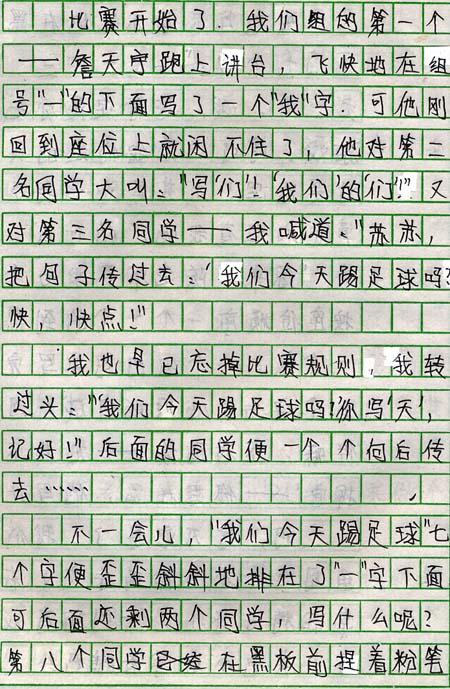 比赛开始了．我们组的第一个
——詹天宇跑上讲台，飞快地在组
号"一"的下面写了一个"我"字．可他刚
回到座位上就闲不住了，他对第二
名同学大叫："写'们'！'我们'的'们'！"又
对第三名同学——我喊道："苏苏，
把句子传过去：'我们今天踢足球吗？'
快，快点！"
我也早已忘掉比赛规则，我转
过头："'我们今天踢足球吗？'你写'天'，
记好！"后面的同学便一个个向后传
去……．
不一会儿，"我们今天踢足球"七
个字便歪歪斜斜地排在了"一"字下面
可后面还剩两个同学，写什么呢？
第八个同学已经在黑板前捏着粉笔